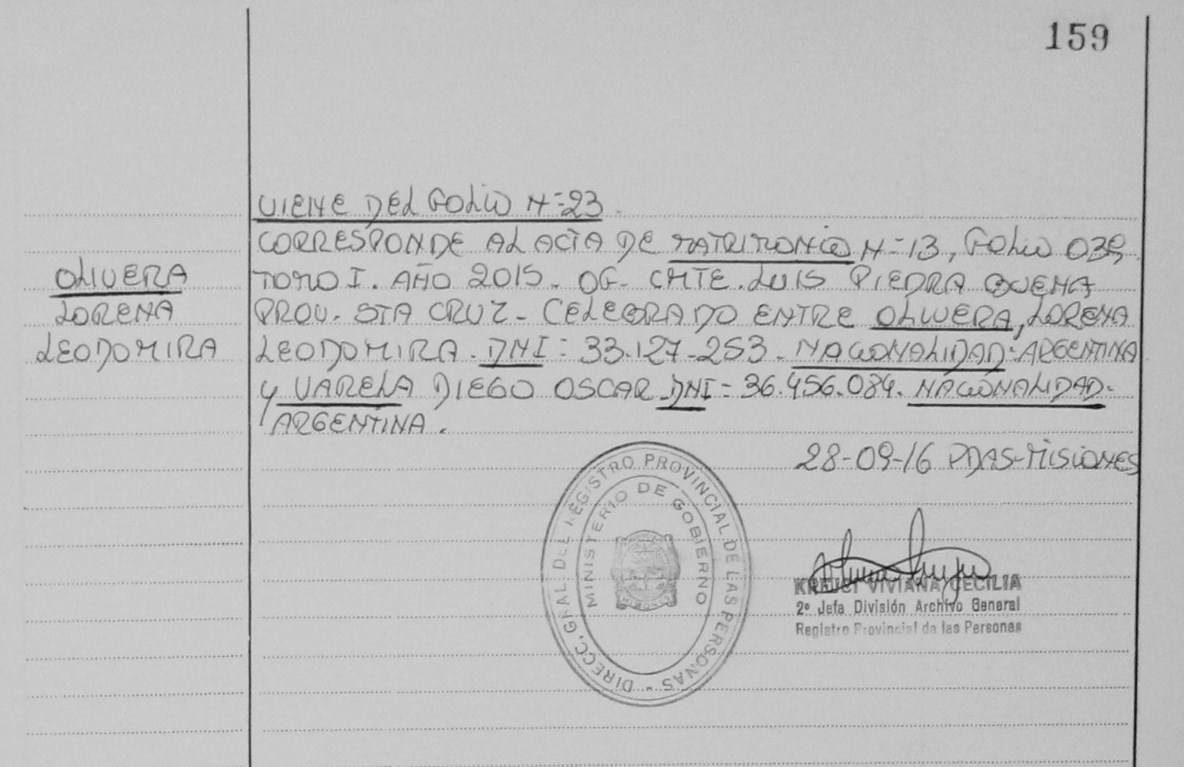 159
VIENE DEL FOLIO N=23.
CORRESPONDE AL ACTA DE MATRIMONIO N=13, FOLIO 039
OLIVERA
TOMO I. AÑO 2015. OF. CMTE. LUIS PIEDRA BUENA
LORENA
PROV. STA CRUZ - CELEBRADO ENTRE OLIVERA, LORENA
LEODOMIRA
LEODOMIRA. DNI: 33.127.253. NACIONALIDAD: ARGENTINA
y VARELA DIEGO OSCAR. DNI= 36.456.084. NACIONALIDAD.
ARGENTINA.
28-09-16 PDAS-MISIONES
DIRECC. GRAL DEL REGISTRO PROVINCIAL DE LAS PERSONAS -
MINISTERIO DE GOBIERNO
VIVIANA CECILIA
2º Jefa División Archivo General
Registro Provincial de las Personas